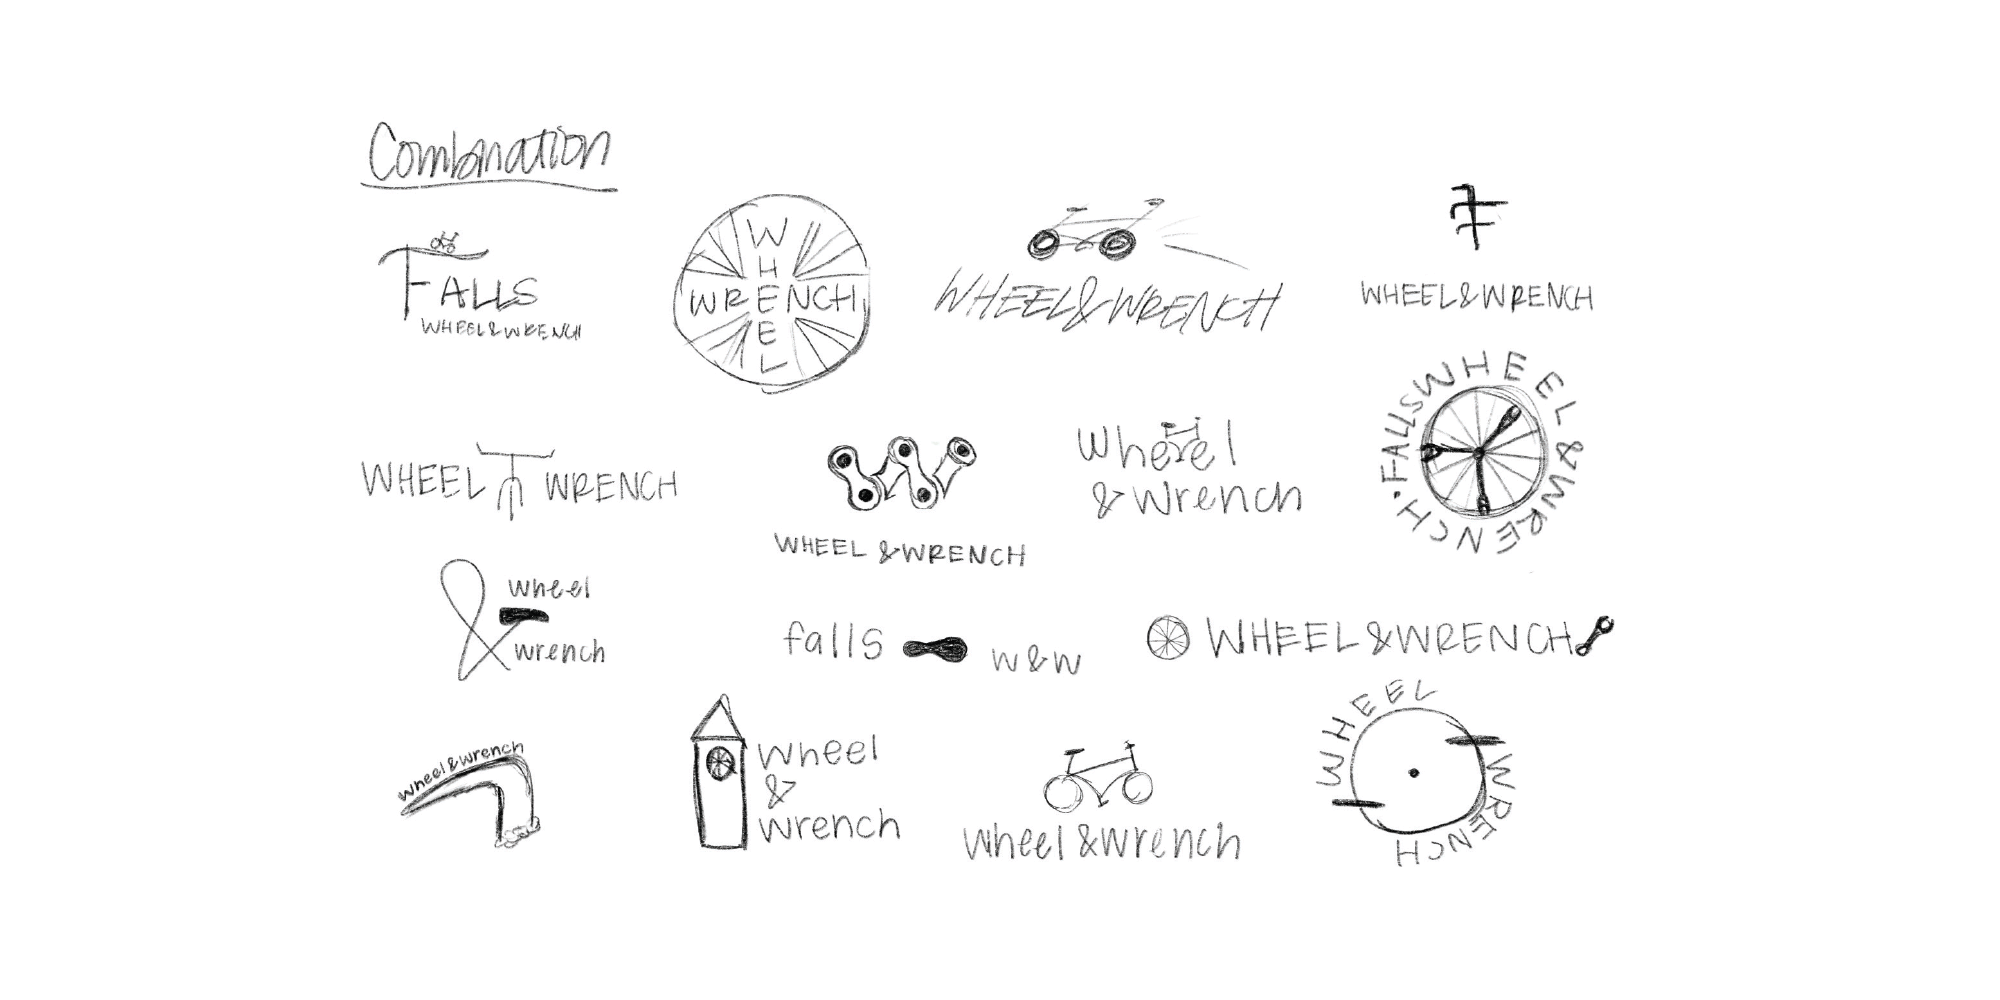 Combination
FALLS
WHEEL&WRENCH
WHEEL
WRENCH
WHEEL&WRENCH
WHEEL&WRENCH
WHEEL WRENCH
WHEEL &WRENCH
wheel
& wrench
FALLS WHEEL & WRENCH •
& wheel
wrench
falls w&w
WHEEL &WRENCH
wheel & wrench
wheel
&
wrench
wheel &wrench
WHEEL WRENCH